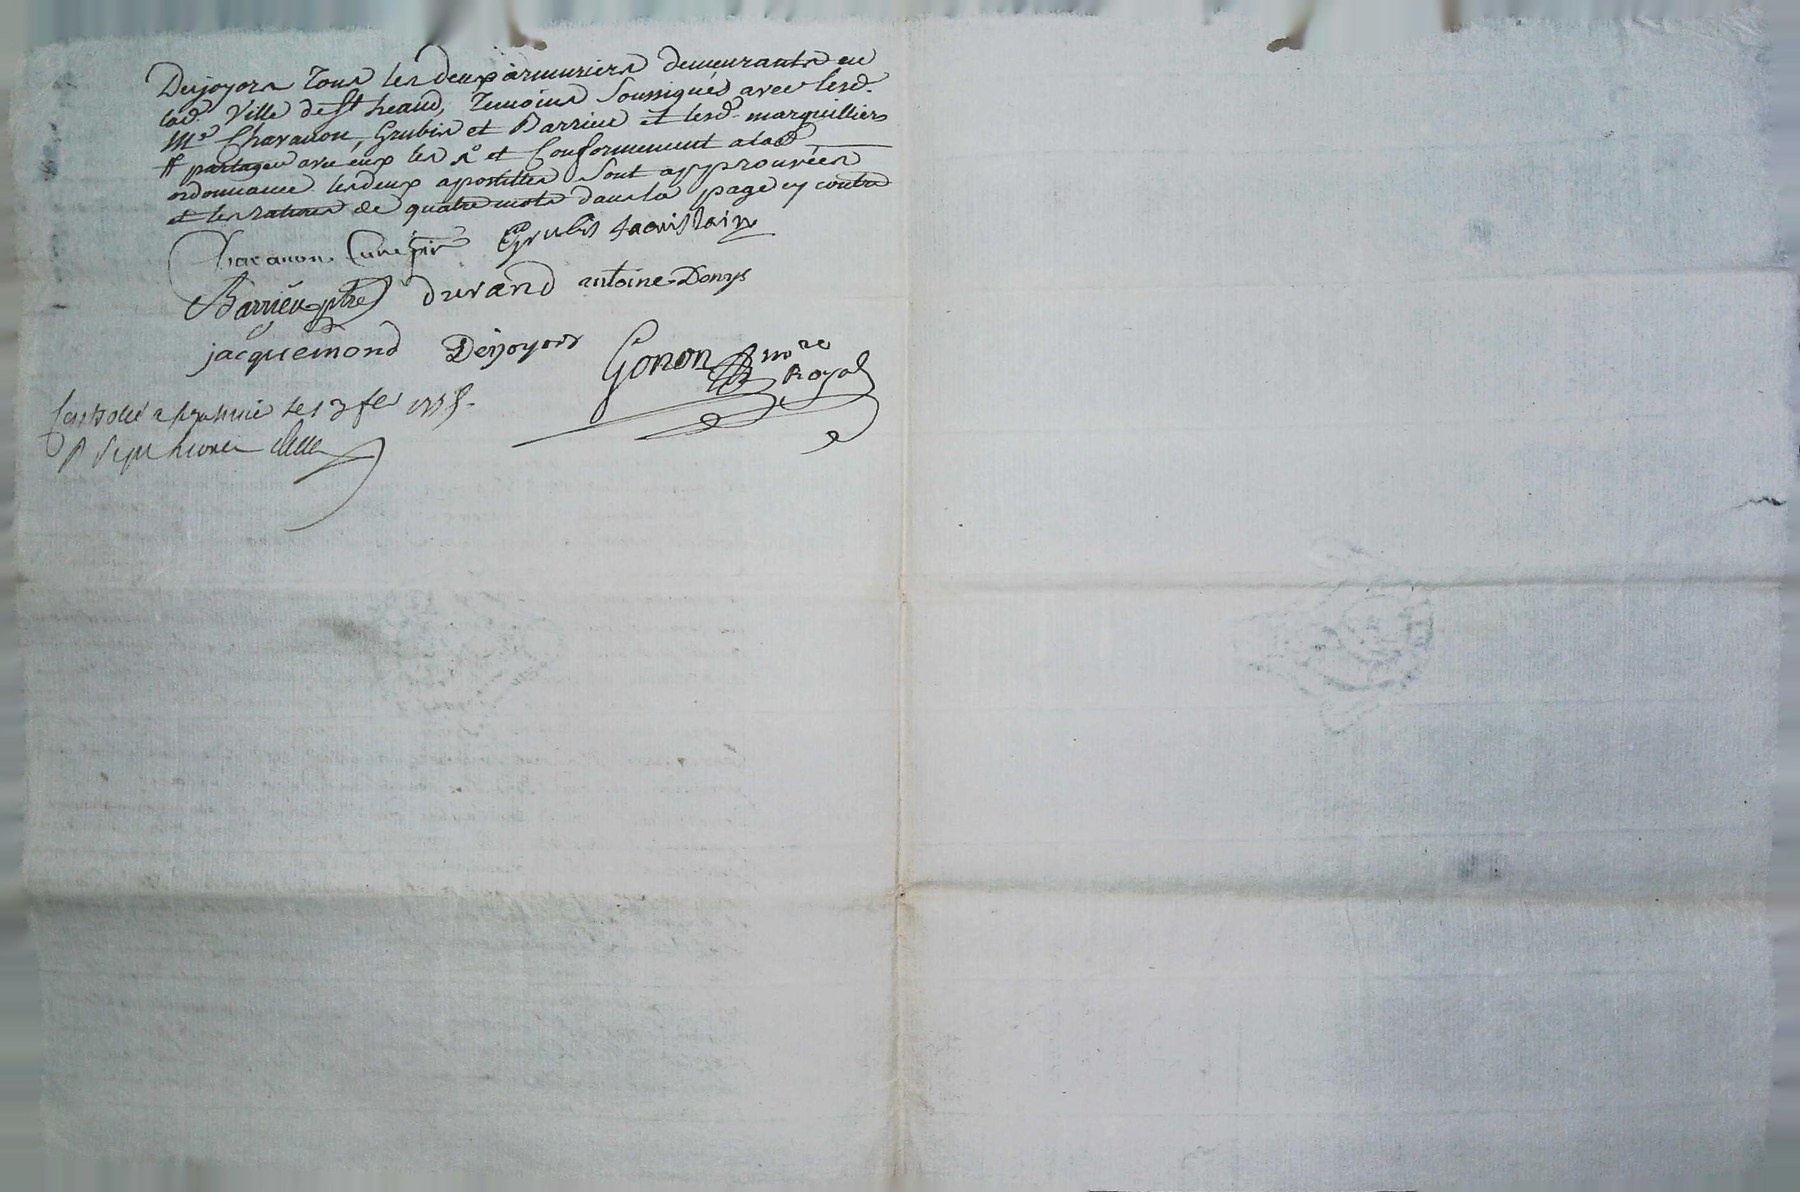 Dejoyera Tous les deux armuriers demeurants en
lad. Ville de St heand, Temoins Soussignés avec lesd.
Mre Charanon, Grubis et Barrieu et lesd. marguilliers
partagen avec eux les et Conformement a lad.
ordonnance les deux apostilles Sont approuvées
et les ratures de quatre mots dans la page cy contre
Charanon Curé Grubis
Barrieu ptre durand antoine Denys
jacquemond Dejoyera Gonon nore
Royal
Controllé a le 13 fer